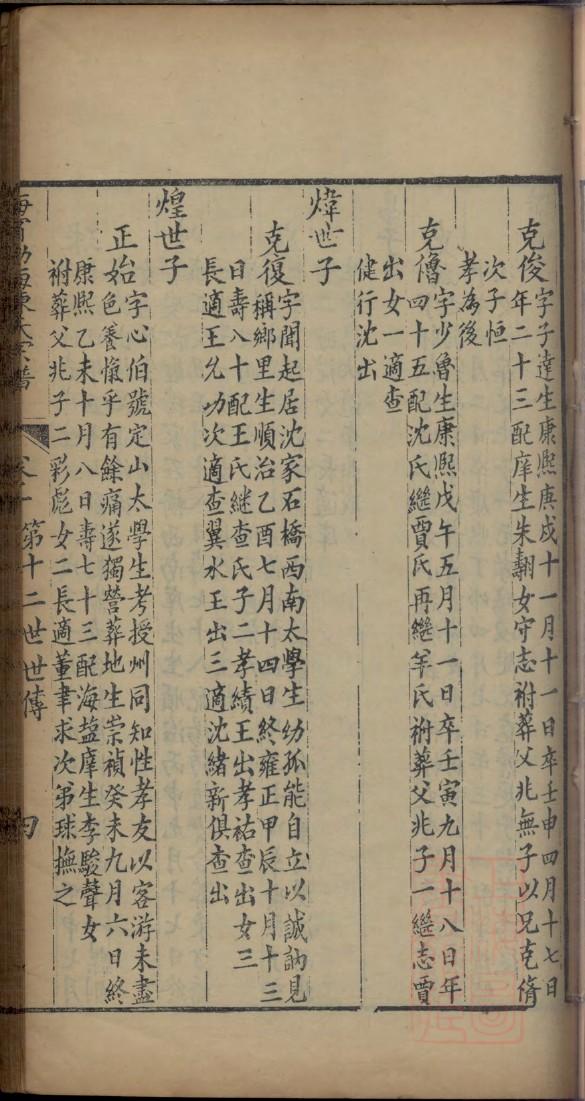 克俊字子達生康熙庚戌十一月十一日卒壬申四月十七日
年二十三配庠生朱翿女守志祔葬父兆無子以兄克脩
次子恒
孝為後
克僑字少魯生康熙戊午五月十一日卒壬寅九月十八日年
四十五配沈氏繼賈氏再繼羊氏祔葬父兆子一繼志賈
出女一適查
健行沈出
煒世子
克復字聞起居沈家石橋西南太學生幼孤能自立以誠訥見
稱鄉里生順治乙酉七月十四日終雍正甲辰十月十三
日壽八十配王氏繼查氏子二孝績王出孝祜查出女三
長適王允功次適查翼水王出三適沈緒新俱查出
煌世子
正始字心伯號定山太學生考授州同知性孝友以客游未盡
色養愾乎有餘痛遂獨營葬地生崇禎癸未九月六日終
康熙乙未十月八日壽七十三配海盐庠生李駿聲女
祔葬父兆子二彩彪女二長適董聿求次弟球撫之
第十二世世傳